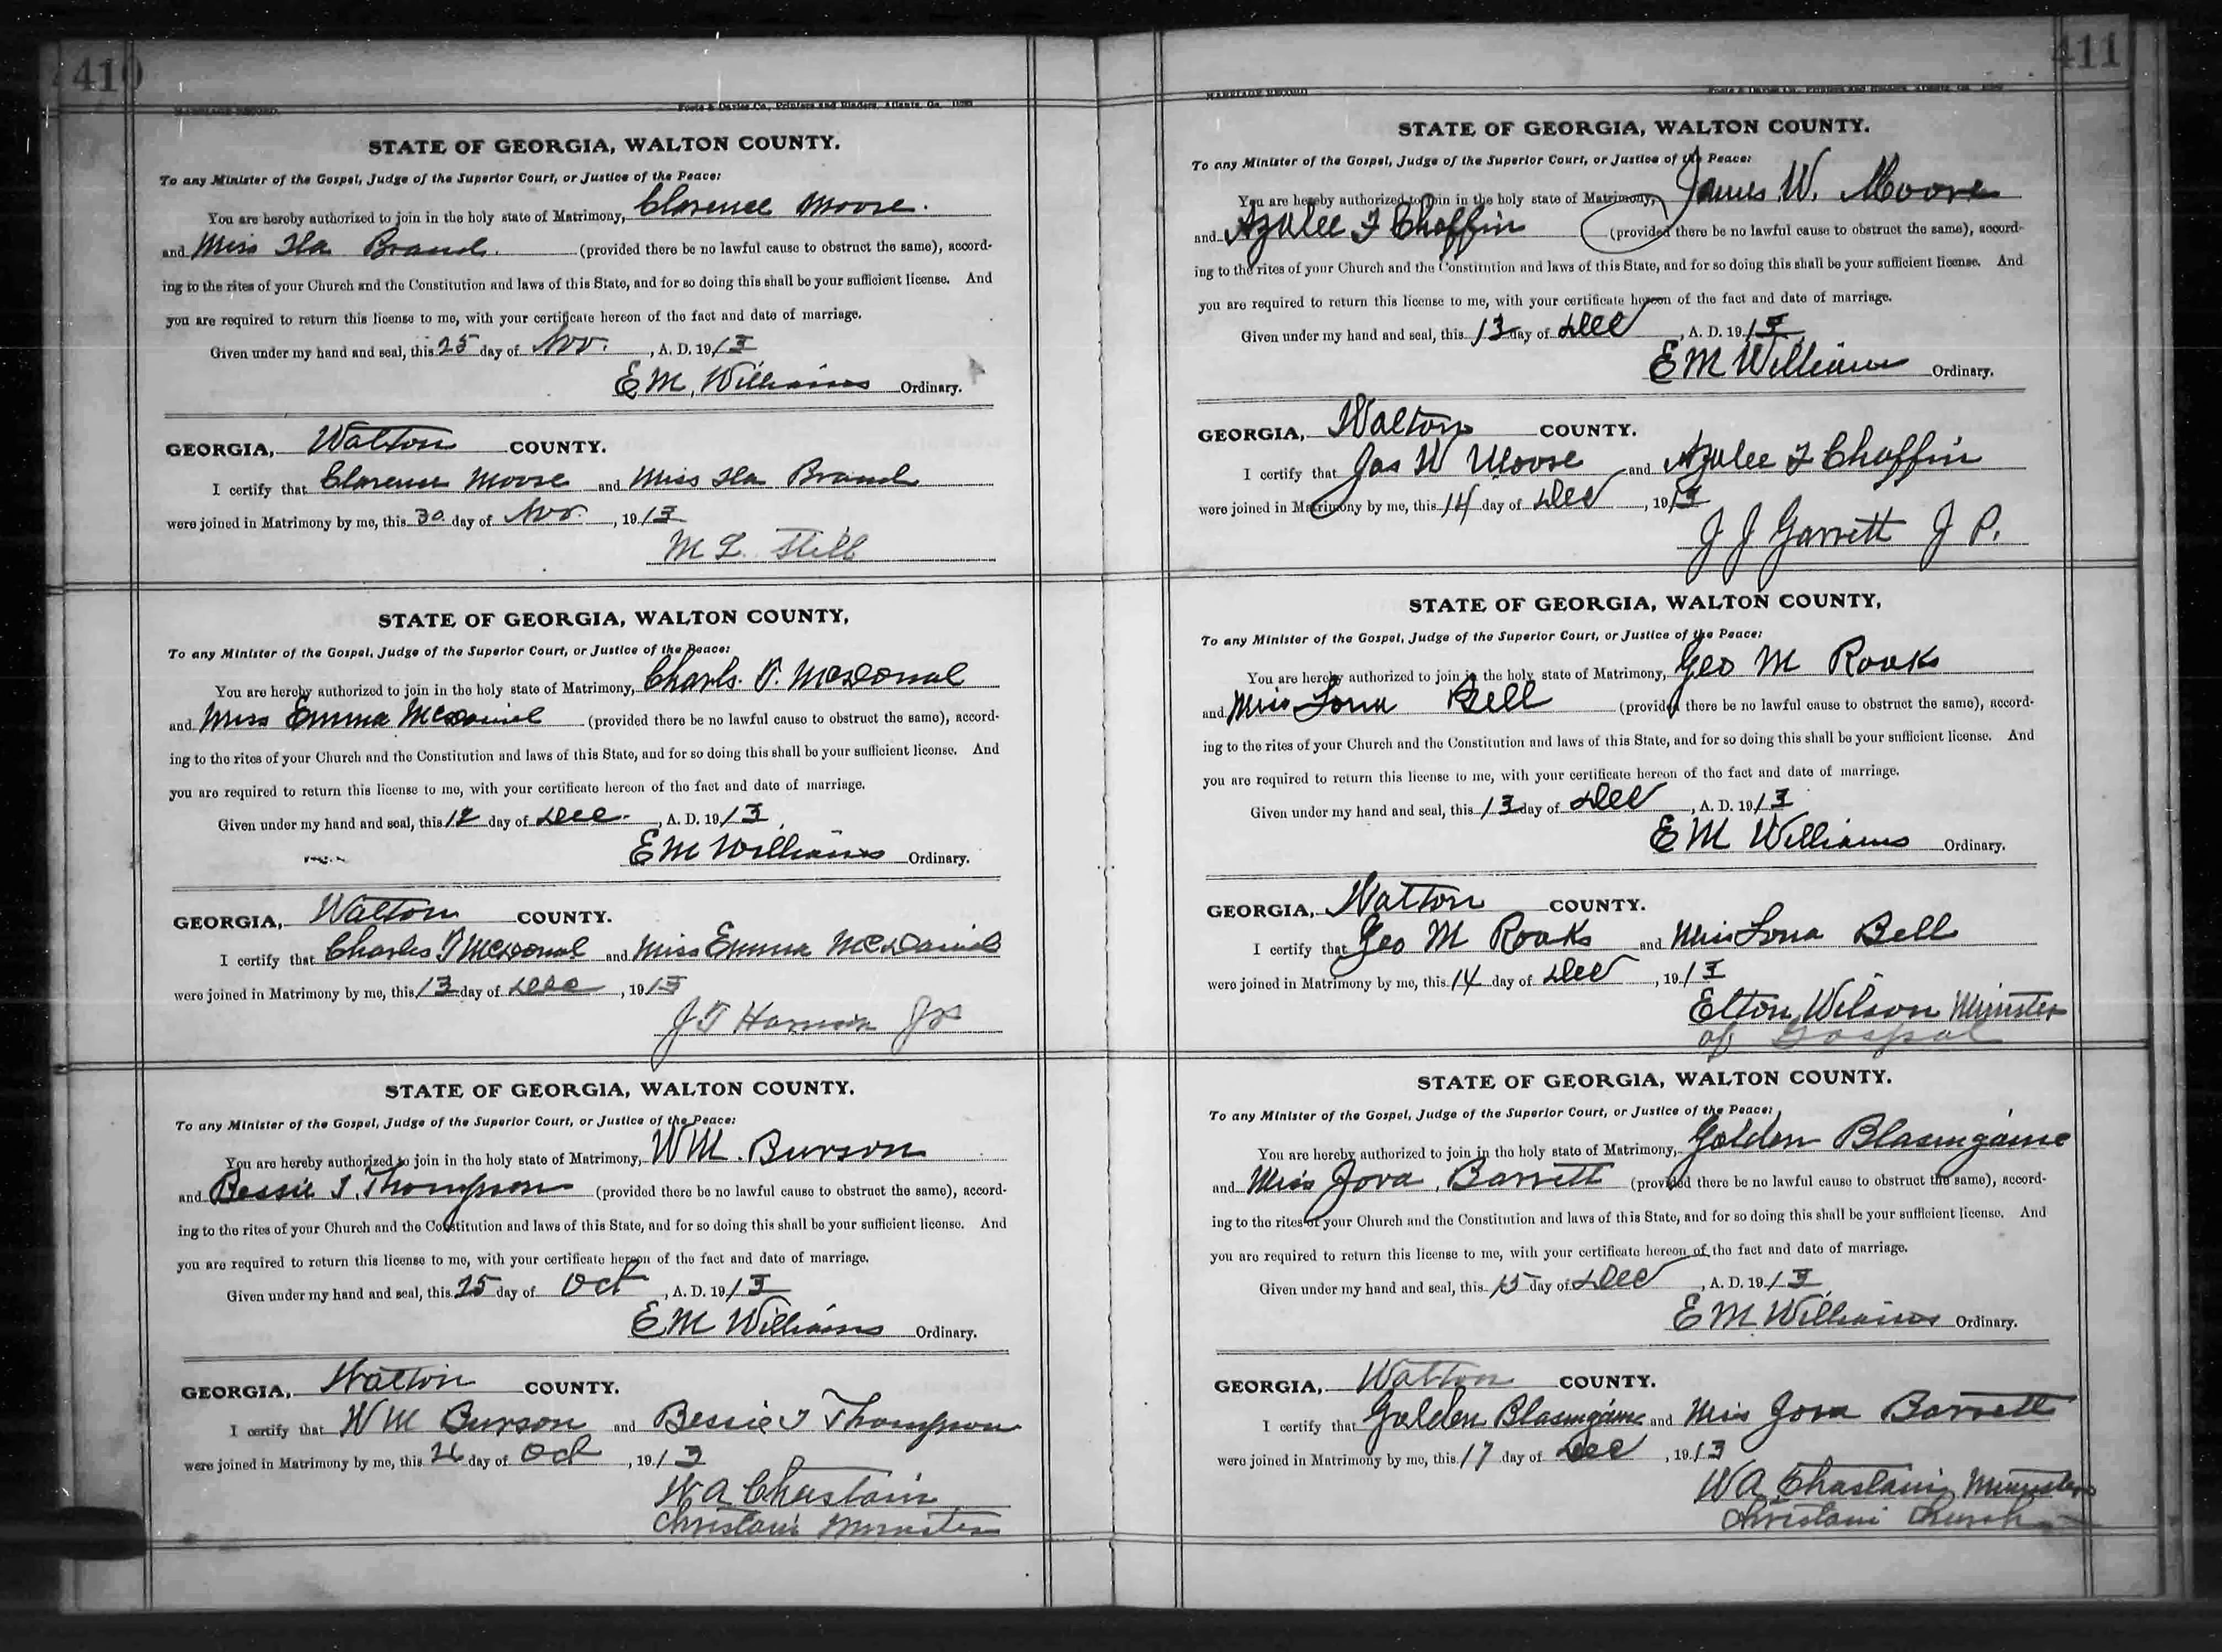 410
MARRIAGE RECORD
Foote & Davies Co., Printers and Binders, Atlanta, Ga.
STATE OF GEORGIA, WALTON COUNTY.
To any Minister of the Gospel, Judge of the Superior Court, or Justice of the Peace:
You are hereby authorized to join in the holy state of Matrimony, Clarence Moore.
and Miss Ila Brand. (provided there be no lawful cause to obstruct the same), accord-
ing to the rites of your Church and the Constitution and laws of this State, and for so doing this shall be your sufficient license. And
you are required to return this license to me, with your certificate hereon of the fact and date of marriage.
Given under my hand and seal, this 25 day of Nov. , A. D. 1913
E M, Williams Ordinary.
GEORGIA, Walton COUNTY.
I certify that Clarence Moore and Miss Ila Brand
were joined in Matrimony by me, this 30 day of Nov. , 1913
M L Still
STATE OF GEORGIA, WALTON COUNTY,
To any Minister of the Gospel, Judge of the Superior Court, or Justice of the Peace:
You are hereby authorized to join in the holy state of Matrimony, Charls. T. McDonal
and Miss Emma McDaniel (provided there be no lawful cause to obstruct the same), accord-
ing to the rites of your Church and the Constitution and laws of this State, and for so doing this shall be your sufficient license. And
you are required to return this license to me, with your certificate hereon of the fact and date of marriage.
Given under my hand and seal, this 12 day of Dec. , A. D. 1913
E M Williams Ordinary.
GEORGIA, Walton COUNTY.
I certify that Charles T McDonal and Miss Emma McDaniel
were joined in Matrimony by me, this 13 day of Dec , 1913
J T
STATE OF GEORGIA, WALTON COUNTY.
To any Minister of the Gospel, Judge of the Superior Court, or Justice of the Peace:
You are hereby authorized to join in the holy state of Matrimony, W M. Burson
and Bessie T. Thompson (provided there be no lawful cause to obstruct the same), accord-
ing to the rites of your Church and the Constitution and laws of this State, and for so doing this shall be your sufficient license. And
you are required to return this license to me, with your certificate hereon of the fact and date of marriage.
Given under my hand and seal, this 25 day of Oct , A. D. 1913
E M Williams Ordinary.
GEORGIA, Walton COUNTY.
I certify that W M Burson and Bessie T Thompson
were joined in Matrimony by me, this 26 day of Oct , 1913
W A Chastain
Christain Minister
411
MARRIAGE RECORD
Foote & Davies Co., Printers and Binders, Atlanta, Ga.
STATE OF GEORGIA, WALTON COUNTY.
To any Minister of the Gospel, Judge of the Superior Court, or Justice of the Peace:
You are hereby authorized to join in the holy state of Matrimony, James W. Moore
and Azalee F Chaffin (provided there be no lawful cause to obstruct the same), accord-
ing to the rites of your Church and the Constitution and laws of this State, and for so doing this shall be your sufficient license. And
you are required to return this license to me, with your certificate hereon of the fact and date of marriage.
Given under my hand and seal, this 13 day of Dec , A. D. 1913
E M Williams Ordinary.
GEORGIA, Walton COUNTY.
I certify that Jas W Moore and Azalee F Chaffin
were joined in Matrimony by me, this 14 day of Dec , 1913
J J Garrett J P.
STATE OF GEORGIA, WALTON COUNTY,
To any Minister of the Gospel, Judge of the Superior Court, or Justice of the Peace:
You are hereby authorized to join in the holy state of Matrimony, Geo M Rooks
and Miss Lona Bell (provided there be no lawful cause to obstruct the same), accord-
ing to the rites of your Church and the Constitution and laws of this State, and for so doing this shall be your sufficient license. And
you are required to return this license to me, with your certificate hereon of the fact and date of marriage.
Given under my hand and seal, this 13 day of Dec , A. D. 1913
E M Williams Ordinary.
GEORGIA, Walton COUNTY.
I certify that Geo M Rooks and Miss Lona Bell
were joined in Matrimony by me, this 14 day of Dec , 1913
Elton Wilson Minister
of Gospal
STATE OF GEORGIA, WALTON COUNTY.
To any Minister of the Gospel, Judge of the Superior Court, or Justice of the Peace:
You are hereby authorized to join in the holy state of Matrimony, Golden Blasingame
and Miss Jova Barrett (provided there be no lawful cause to obstruct the same), accord-
ing to the rites of your Church and the Constitution and laws of this State, and for so doing this shall be your sufficient license. And
you are required to return this license to me, with your certificate hereon of the fact and date of marriage.
Given under my hand and seal, this 15 day of Dec , A. D. 1913
E M Williams Ordinary.
GEORGIA, Walton COUNTY.
I certify that Golden Blasingame and Miss Jova Barrett
were joined in Matrimony by me, this 17 day of Dec , 1913
W A Chastain Minister
Christain Church